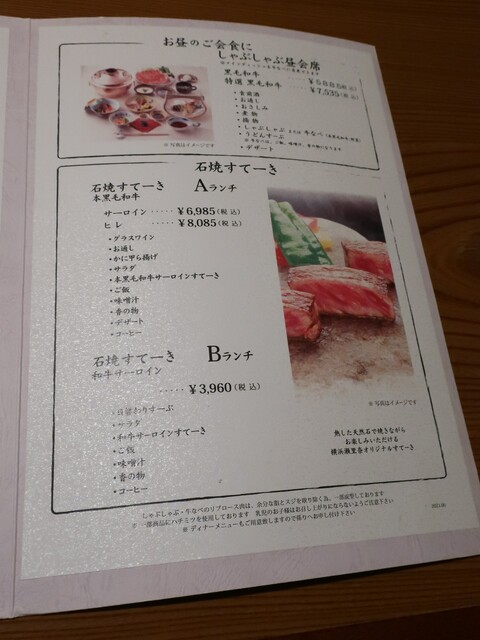 お昼のご会食に
しゃぶしゃぶ昼会席
黒毛和牛
特選 黒毛和牛 ‥‥ ￥7,535(税込)
・食前酒
・お通し
・おさしみ
・煮物
・揚物
・しゃぶしゃぶ または 牛なべ
・うどんすーぷ
・デザート
※ 写真はイメージです
石焼すてーき
石焼すてーき Aランチ
本黒毛和牛
サーロイン ‥‥‥ ￥6,985(税込)
ヒレ ‥‥‥ ￥8,085(税込)
・グラスワイン
・お通し
・かに甲ら揚げ
・サラダ
・本黒毛和牛サーロインすてーき
・ご飯
・味噌汁
・香の物
・デザート
・コーヒー
石焼すてーき Bランチ
和牛サーロイン
‥‥‥ ￥3,960(税込)
・サラダ
・和牛サーロインすてーき
・ご飯
・味噌汁
・香の物
・コーヒー
※ 写真はイメージです
熱した天然石で焼きながら
お楽しみいただける
横浜瀬里奈オリジナルすてーき
しゃぶしゃぶ・牛なべのリブロース肉は、余分な脂とスジを取り除く為、一部成型しております
※ 一部商品にハチミツを使用しております 乳児のお子様はお召し上がりにならないようご注意下さい
※ ディナーメニューもご用意致しますので係りへお申し付け下さい